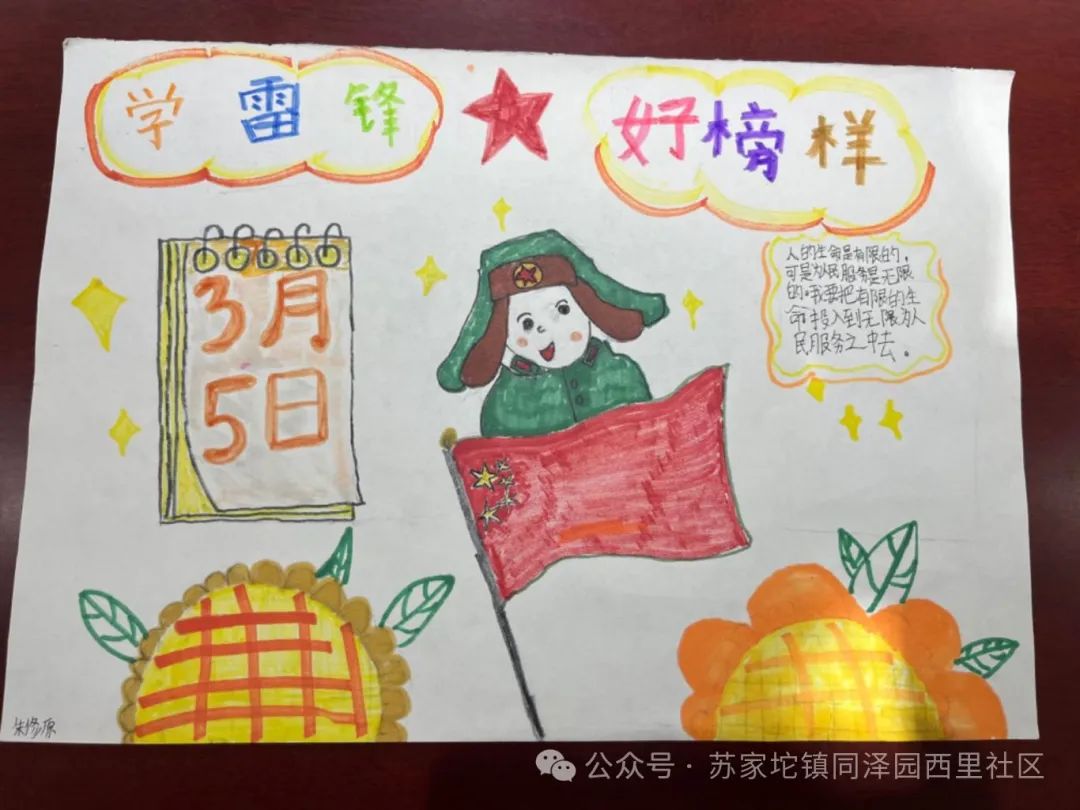 学雷锋
好榜样
3月
5日
人的生命是有限的,
可是为人民服务是无限
的。我要把有限的生
命投入到无限为人
民服务之中去。
公众号·苏家坨镇同泽园西里社区